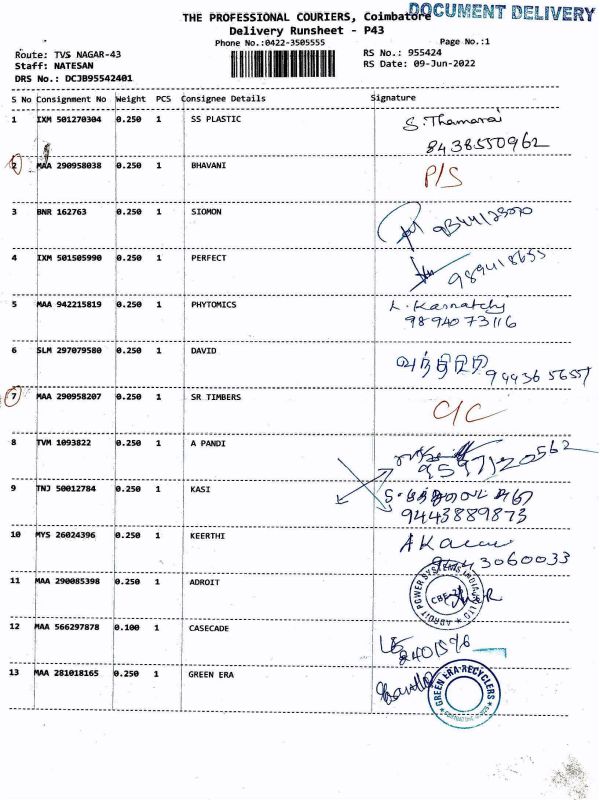 DOCUMENT DELIVERY
THE PROFESSIONAL COURIERS, Coimbatore
Delivery Runsheet - P43
Phone No.:0422-3505555 Page No.:1
Route: TVS NAGAR-43 RS No.: 955424
Staff: NATESAN RS Date: 09-Jun-2022
DRS No.: DCJB95542401
S No Consignment No Weight PCS Consignee Details Signature
1 IXM 501270304 0.250 1 SS PLASTIC S. Thamarai
8438550962
2 MAA 290958038 0.250 1 BHAVANI P/S
3 BNR 162763 0.250 1 SIOMON
4 IXM 501505990 0.250 1 PERFECT
5 MAA 942215819 0.250 1 PHYTOMICS
9894073116
6 SLM 297079580 0.250 1 DAVID
7 MAA 290958207 0.250 1 SR TIMBERS C/C
8 TVM 1093822 0.250 1 A PANDI
9597120562
9 TNJ 50012784 0.250 1 KASI
9443889873
10 MYS 26024396 0.250 1 KEERTHI
11 MAA 290085398 0.250 1 ADROIT
ADROIT POWER SYSTEMS INDIA
12 MAA 566297878 0.100 1 CASECADE
13 MAA 281018165 0.250 1 GREEN ERA
GREEN ERA RECYCLERS